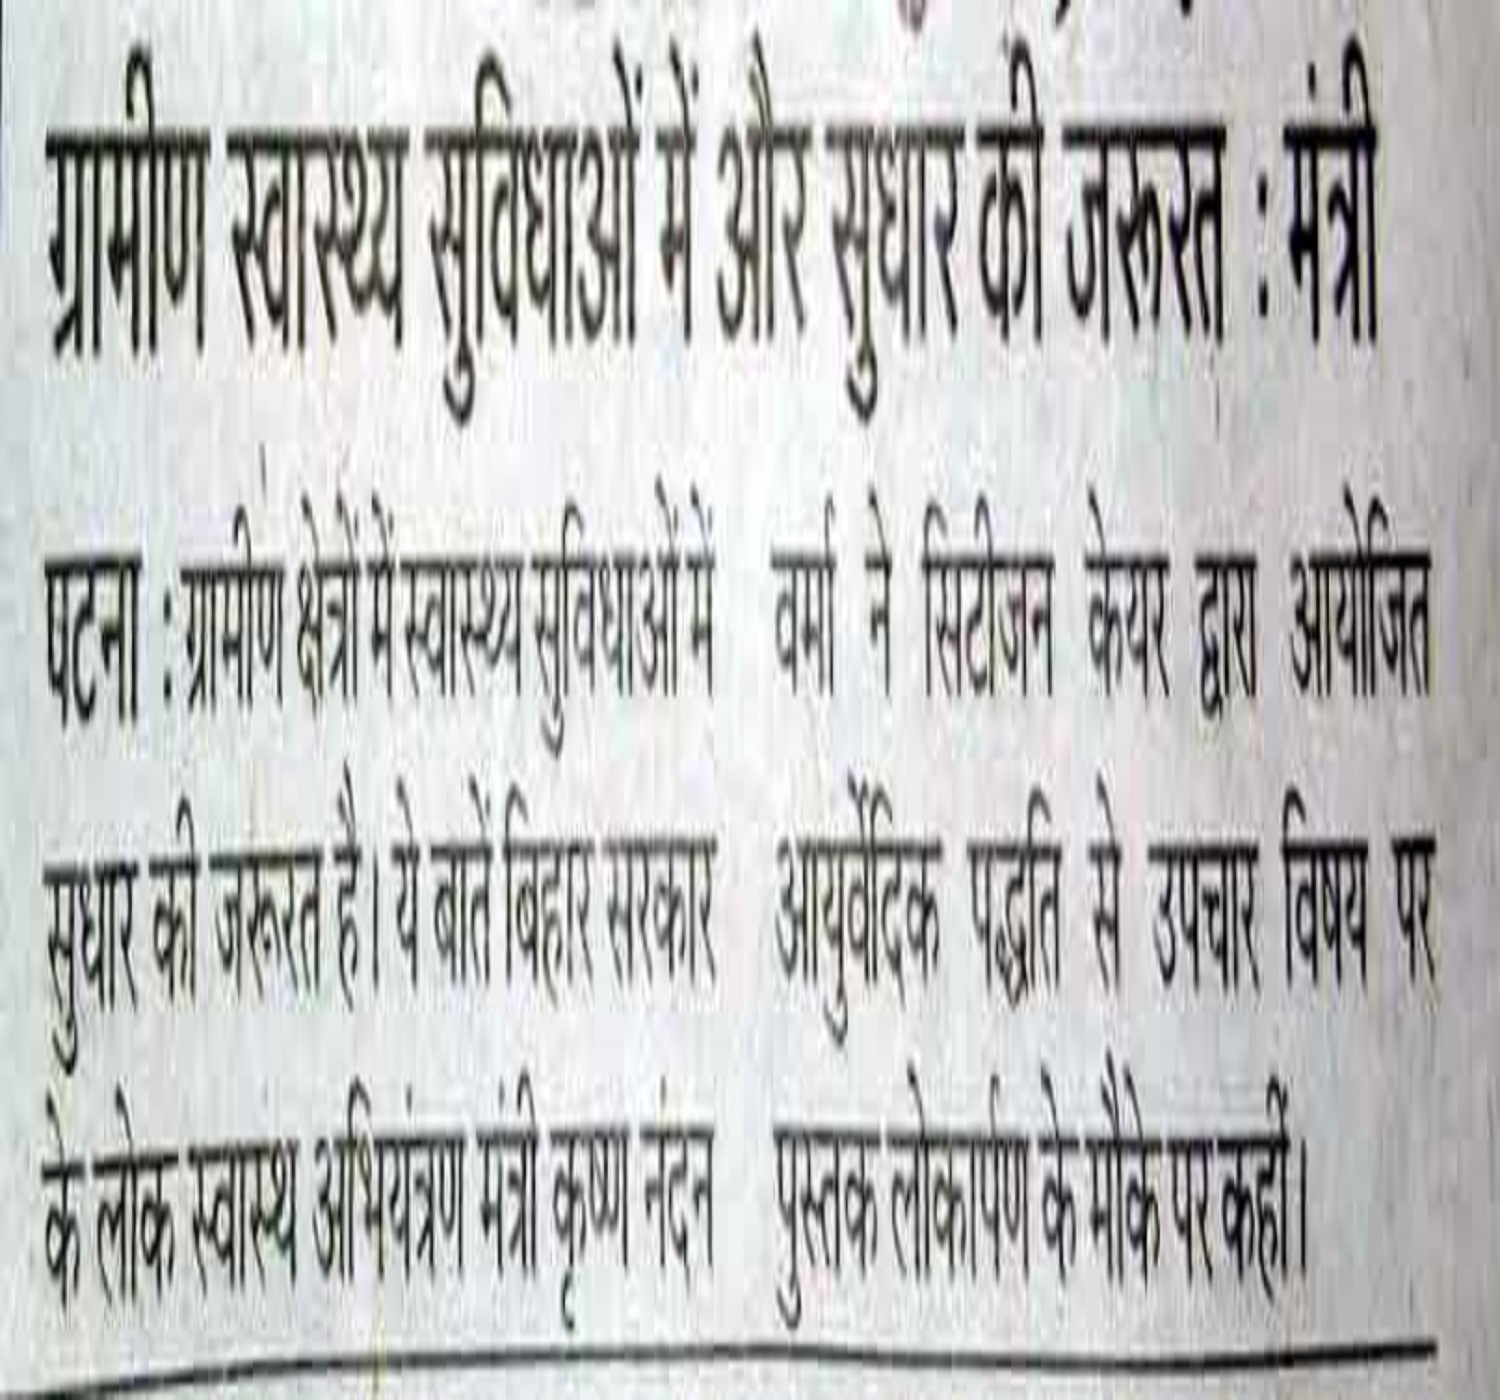 ग्रामीण स्वास्थ्य सुविधाओं में और सुधार की जरूरत : मंत्री
पटना : ग्रामीण क्षेत्रों में स्वास्थ्य सुविधाओं में
सुधार की जरूरत है। ये बातें बिहार सरकार
के लोक स्वास्थ अभियंत्रण मंत्री कृष्ण नंदन
वर्मा ने सिटीजन केयर द्वारा आयोजित
आयुर्वेदिक पद्धति से उपचार विषय पर
पुस्तक लोकार्पण के मौके पर कहीं।